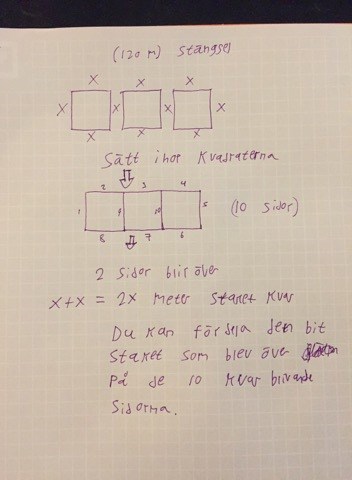 (120 m) stängsel
x x x
x x x x
x x x
Sätt ihop Kvadraterna
2 3 4
1 9 10 5 (10 sidor)
8 7 6
2 sidor blir över
x+x = 2x meter staket kvar
Du kan fördela den bit
staket som blev över
På de 10 kvar blivande
Sidorna.